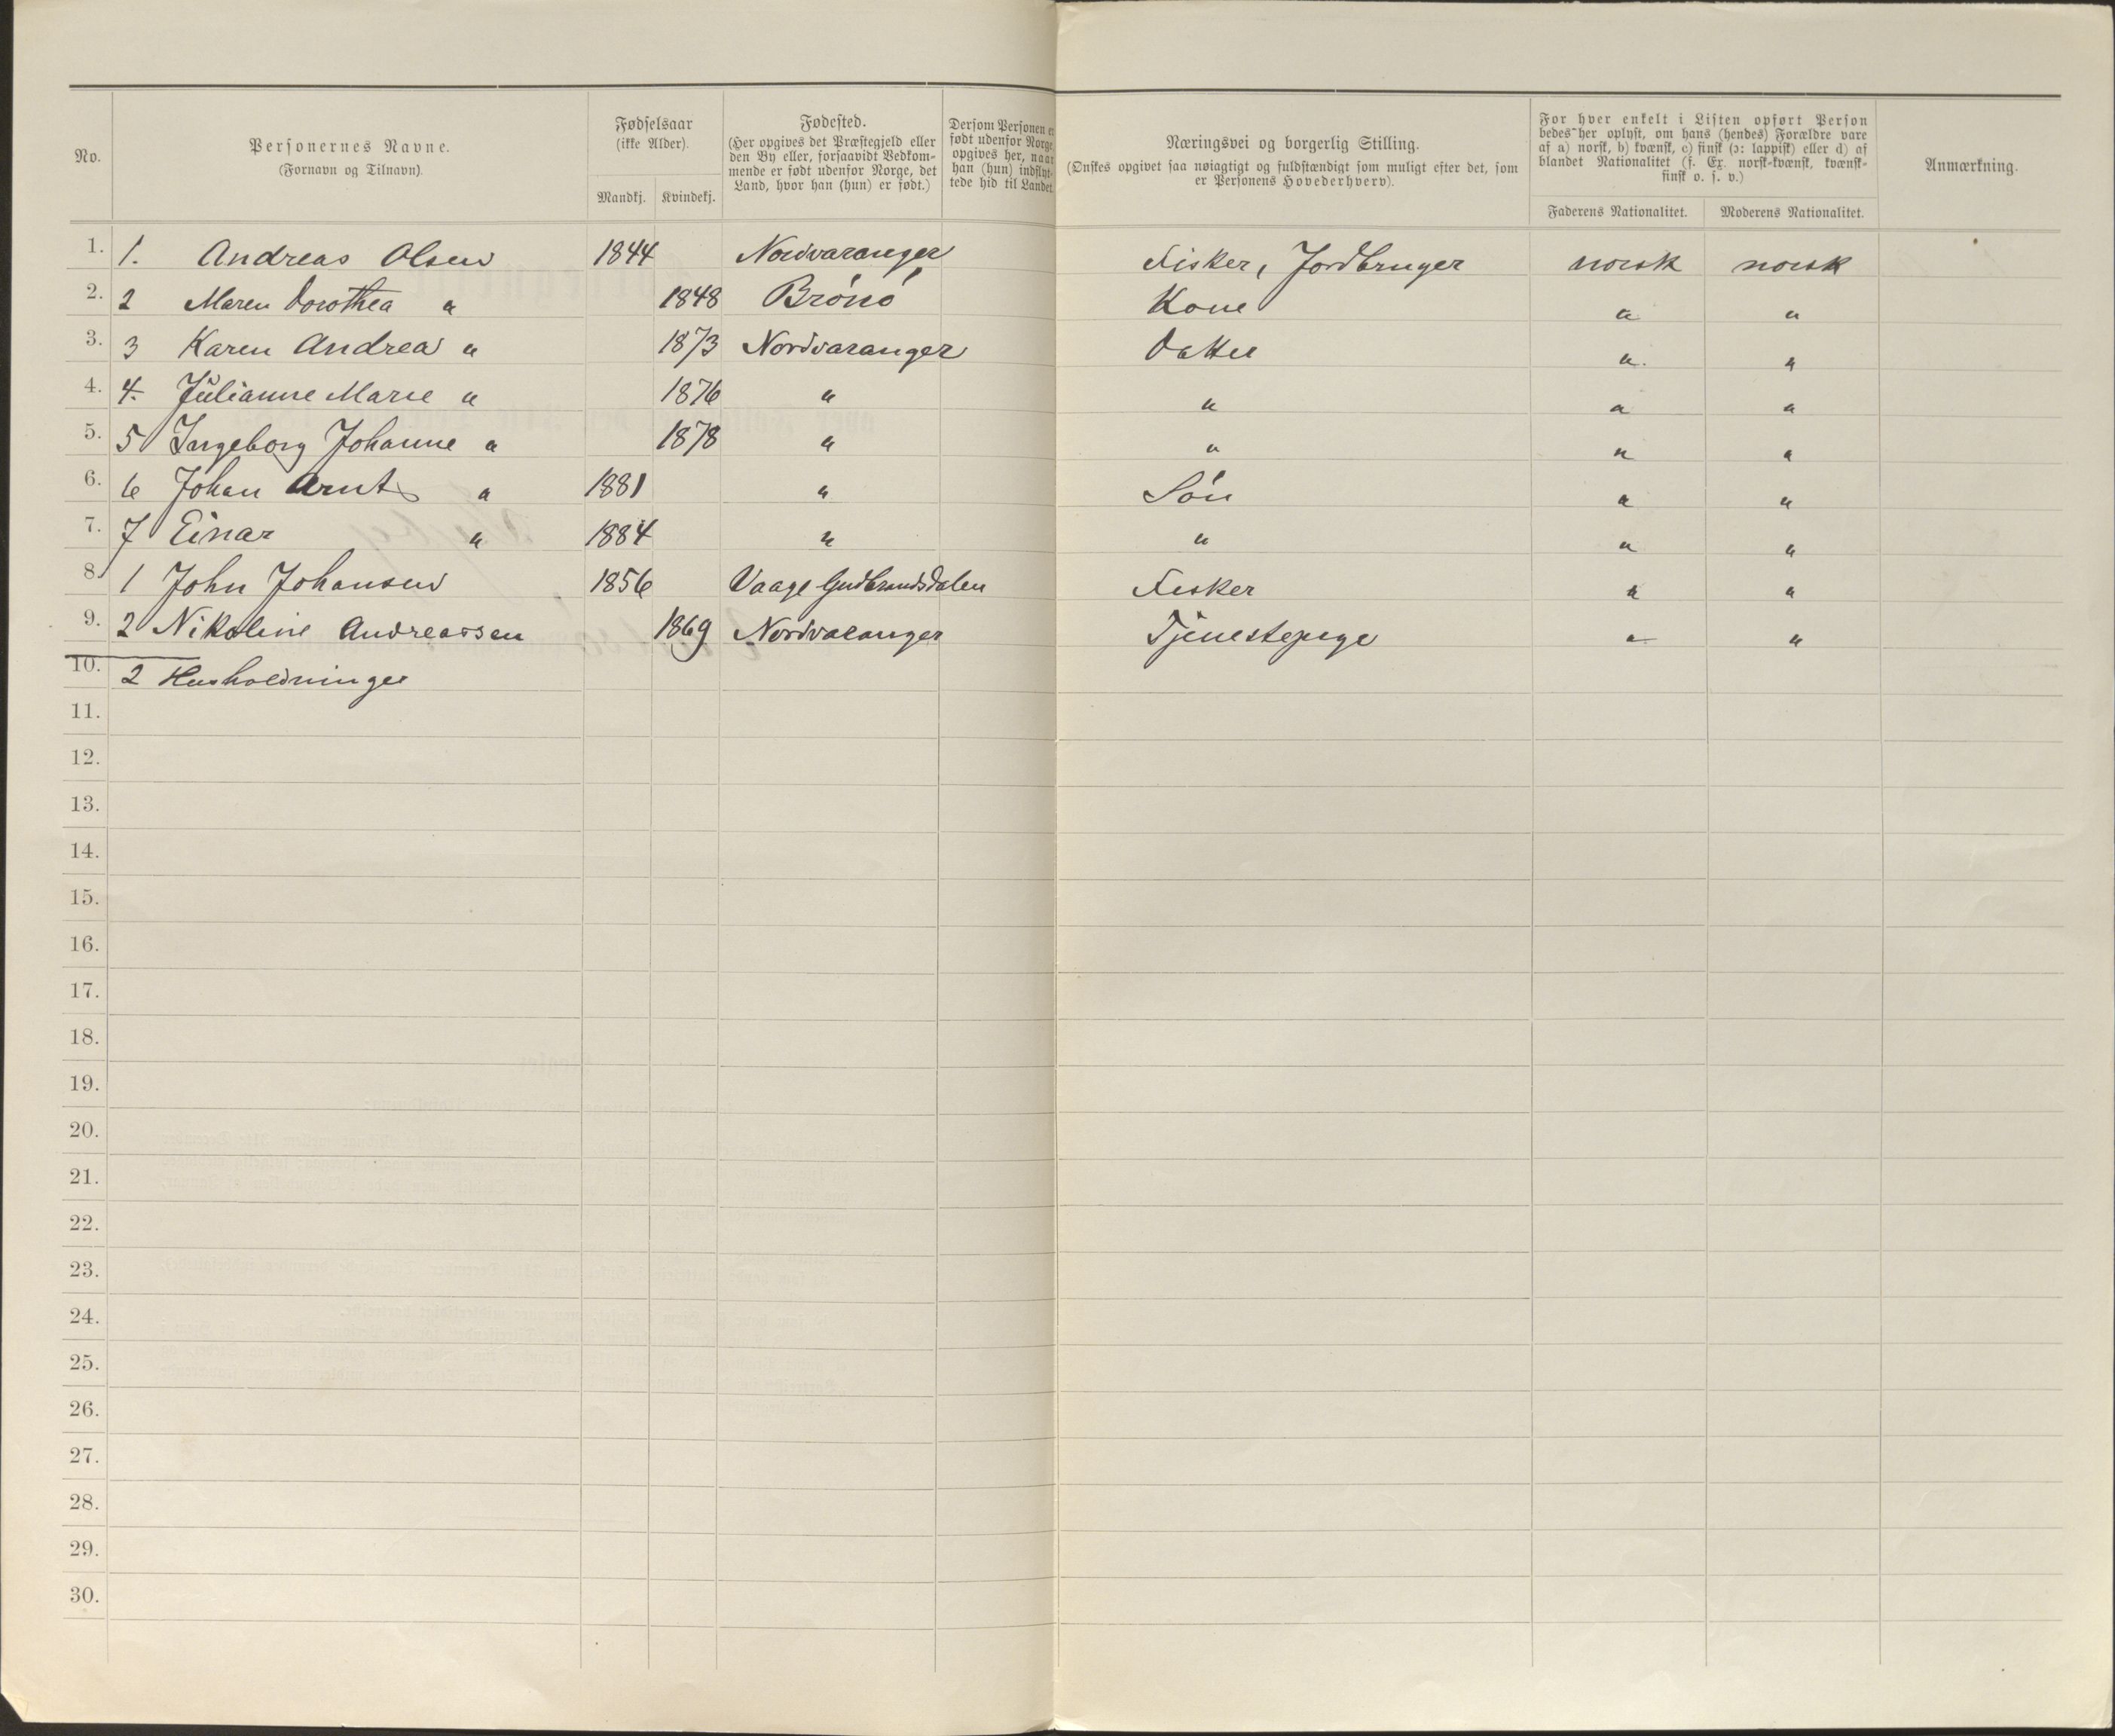 No.
Personernes Navne.
(Fornavn og Tilnavn).
Fødselsaar
(ikke Alder).
Mandkj. Kvindekj.
Fødested.
(Her opgives det Præstegjeld eller
den By eller, forsaavidt Vedkom-
mende er født udenfor Norge, det
Land, hvor han (hun) er født.)
Dersom Personen er
født udenfor Norge
opgives her, naar
han (hun) indflyt-
tede hid til Landet.
Næringsvei og borgerlig Stilling.
(Ønskes opgivet saa nøiagtigt og fuldstændigt som muligt efter det, som
er Personens Hovederhverv).
For hver enkelt i Listen opført Person
bedes her oplyst, om hans (hendes) Forældre vare
af a) norsk, b) kvænsk, c) finsk (ɔ: lappisk) eller d) af
blandet Nationalitet (f. Ex. norsk-kvænsk, kvænsk-
finsk o. s. v.)
Faderens Nationalitet. Moderens Nationalitet.
Anmærkning.
1. 1. Andreas Olsen 1844 Nordvaranger Fisker, Jordbruger norsk norsk
2. 2 Maren Dorothea " 1848 Brónó Kone " "
3. 3 Karen Andrea " 1873 Nordvaranger Datter " "
4. 4. Julianne Marie " 1876 " " " "
5. 5 Ingeborg Johanne " 1878 " " " "
6. 6 Johan Arnt " 1881 " Són " "
7. 7 Einar " 1884 " " " "
8. 1 John Johansen 1856 Vaage Gudbrandsdalen Fisker " "
9. 2 Nikoline Andreassen 1869 Nordvaranger Tjenestepige " "
10. 2 Husholdninger
11.
12.
13.
14.
15.
16.
17.
18.
19.
20.
21.
22.
23.
24.
25.
26.
27.
28.
29.
30.